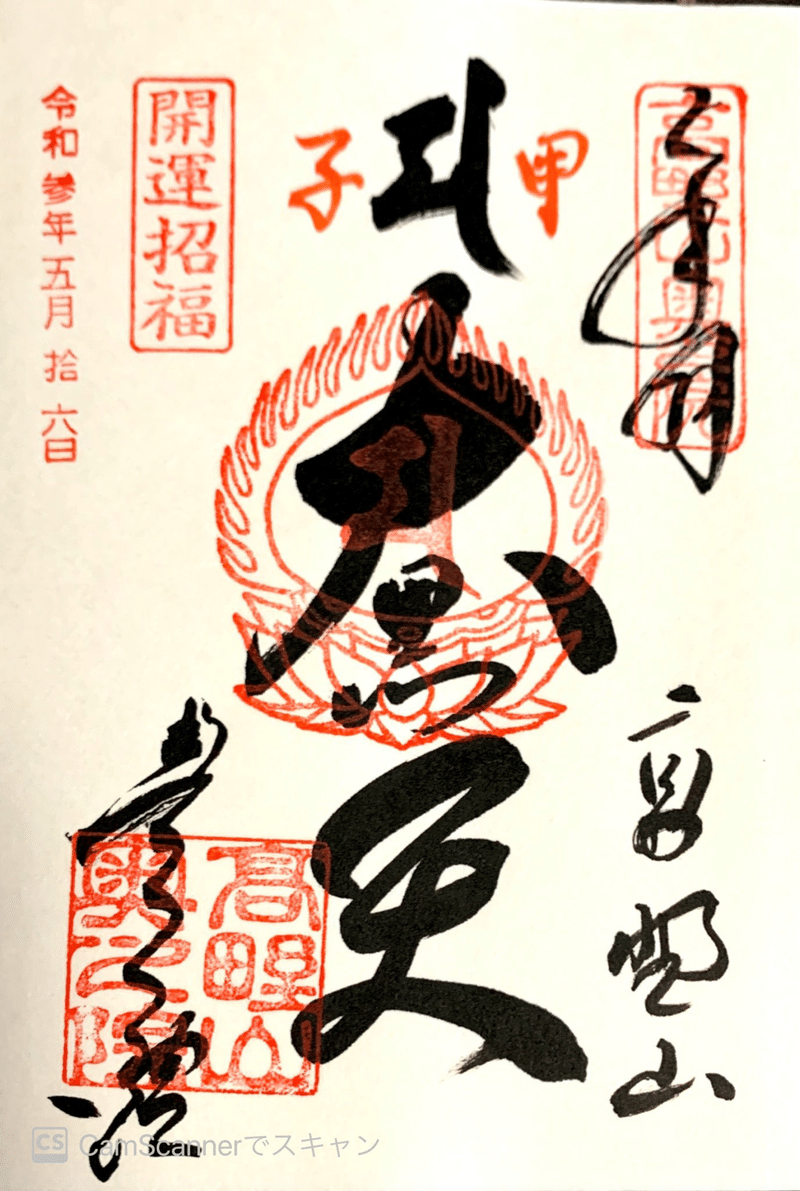 高野山
甲
子
大黒天
開運招福
令和参年五月拾六日
高野山
奥之院
CS CamScannerでスキャン